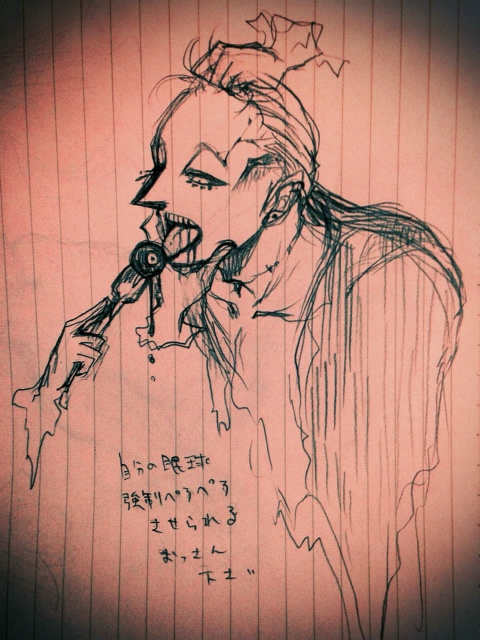 自分の眼球
強制ぺろぺろ
させられる
おっさん
下さい